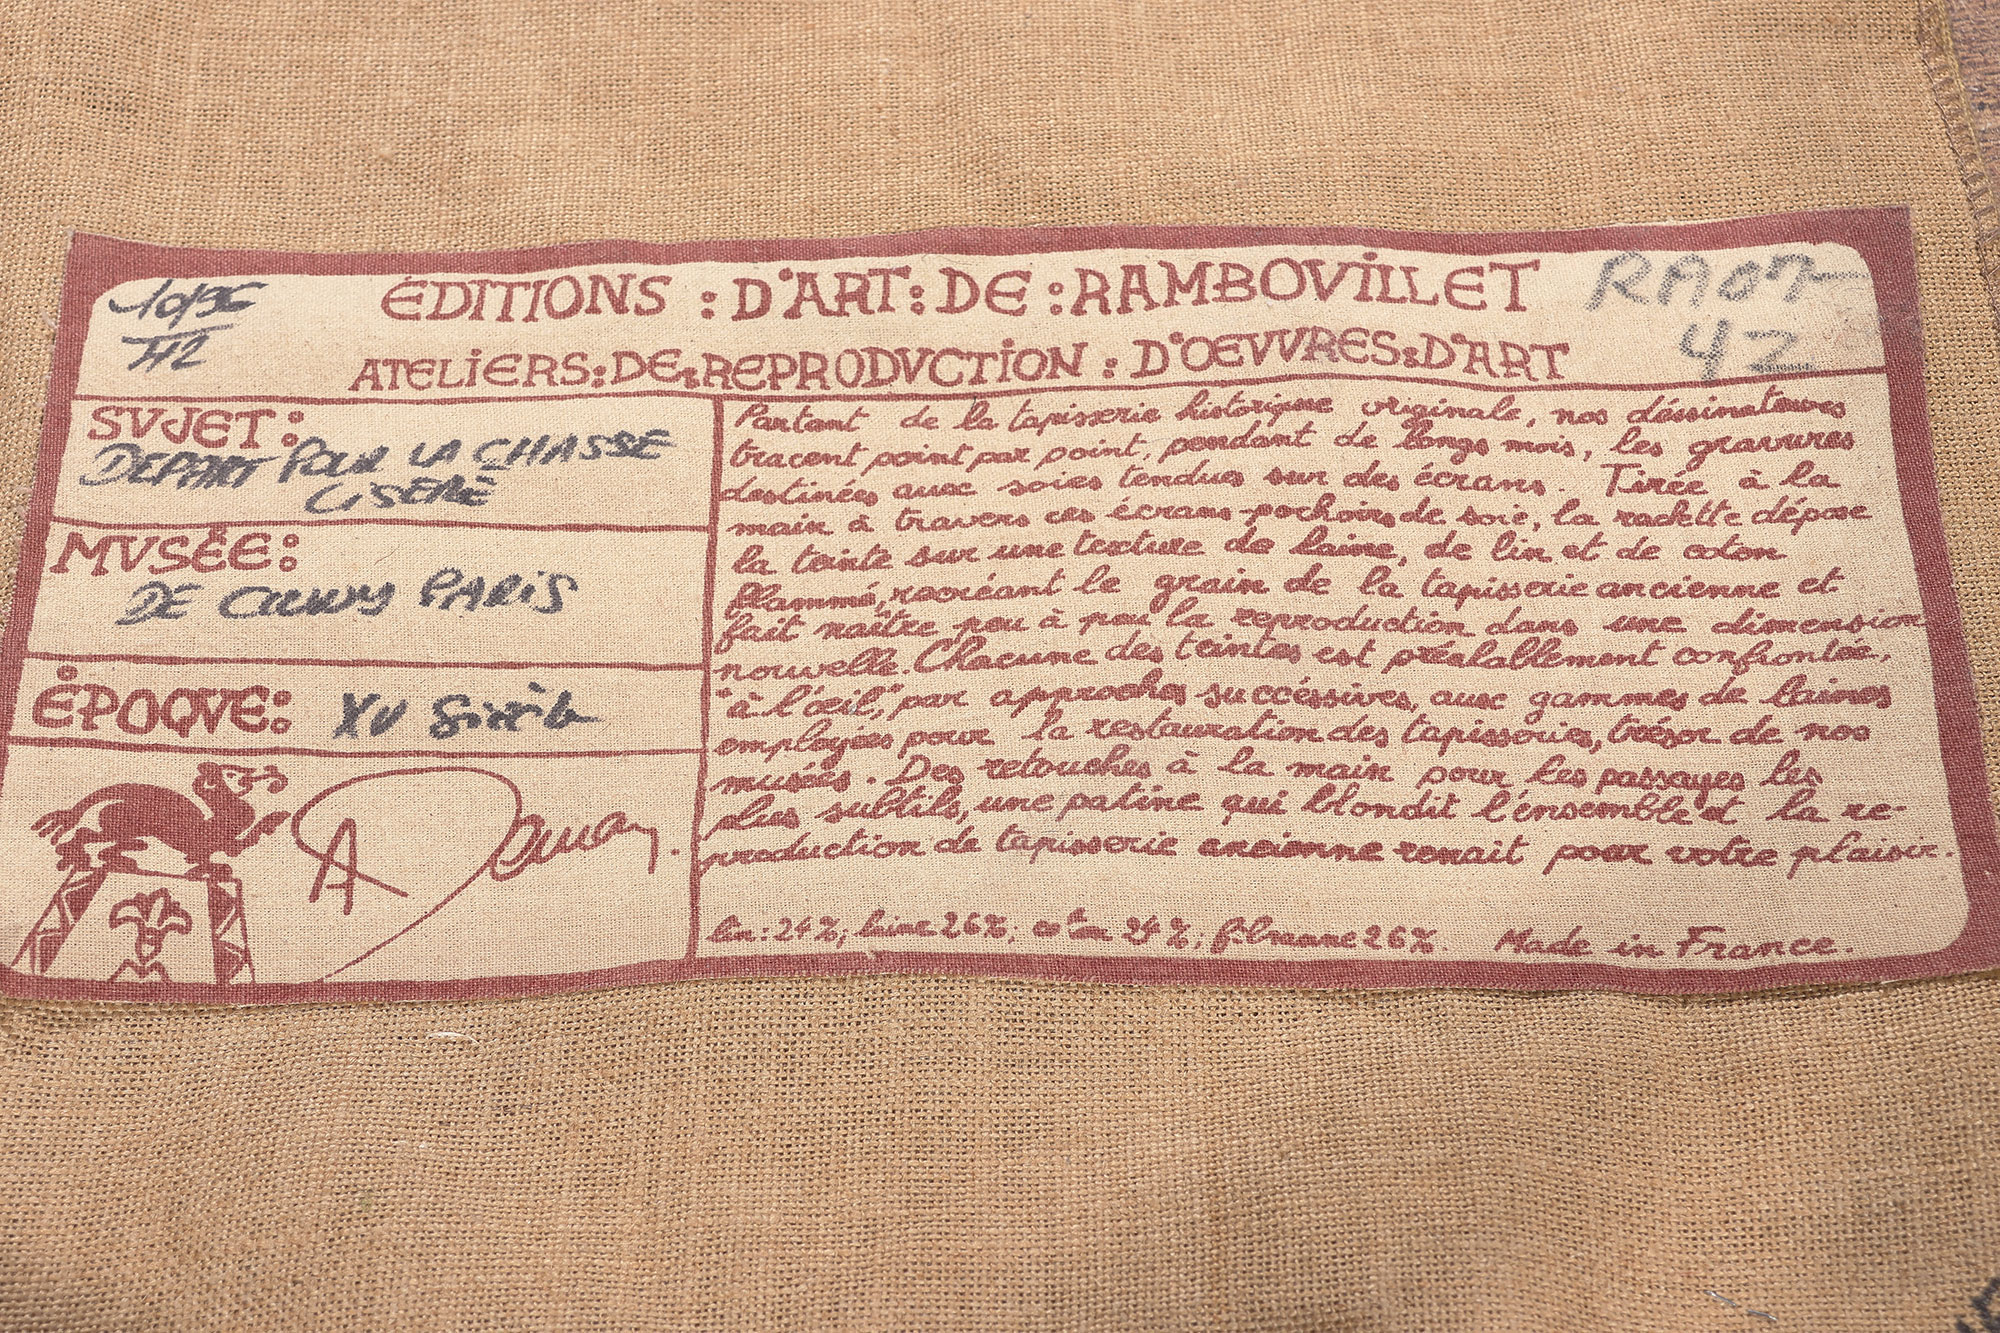 10/96
ÉDITIONS : D'ART : DE : RAMBOVILLET
ATELIERS : DE : REPRODVCTION : D'ŒVVRES : D'ART
42
SVJET :
DEPART POUR LA CHASSE
LISERÉ
MVSÉE :
DE CLUNY PARIS
ÉPOQVE :
XV Siècle
Partant de la tapisserie historique originale, nos déssinateurs
tracent point par point, pendant de longs mois, les gravures
destinées aux soies tendues sur des écrans. Tirée à la
main à travers ces écrans-pochoirs de soie, la raclette dépose
la teinte sur une texture de laine, de lin et de coton
flammé, recréant le grain de la tapisserie ancienne et
fait naître peu à peu la reproduction dans une dimension
nouvelle. Chacune des teintes est préalablement confrontée,
"à l'œil", par approches succéssives, aux gammes de laines
employées pour la restauration des tapisseries, trésor de nos
musées. Des retouches à la main pour les passages les
plus subtils, une patine qui blondit l'ensemble et la re-
production de tapisserie ancienne renait pour votre plaisir.
lin : 24%; laine 26%; coton 24%; fibranne 26%. Made in France.